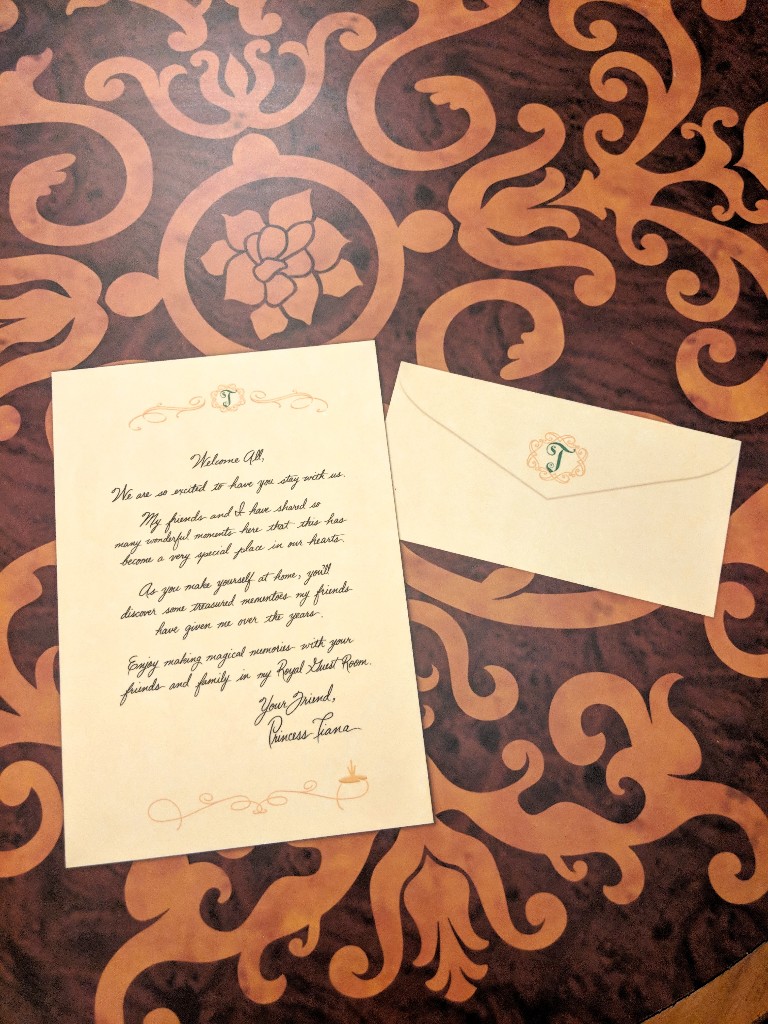 T
Welcome All,
We are so excited to have you stay with us.
My friends and I have shared so
many wonderful moments here that this has
become a very special place in our hearts.
As you make yourself at home, you'll
discover some treasured mementoes my friends
have given me over the years.
Enjoy making magical memories with your
friends and family in my Royal Guest Room.
Your Friend,
Princess Tiana
T